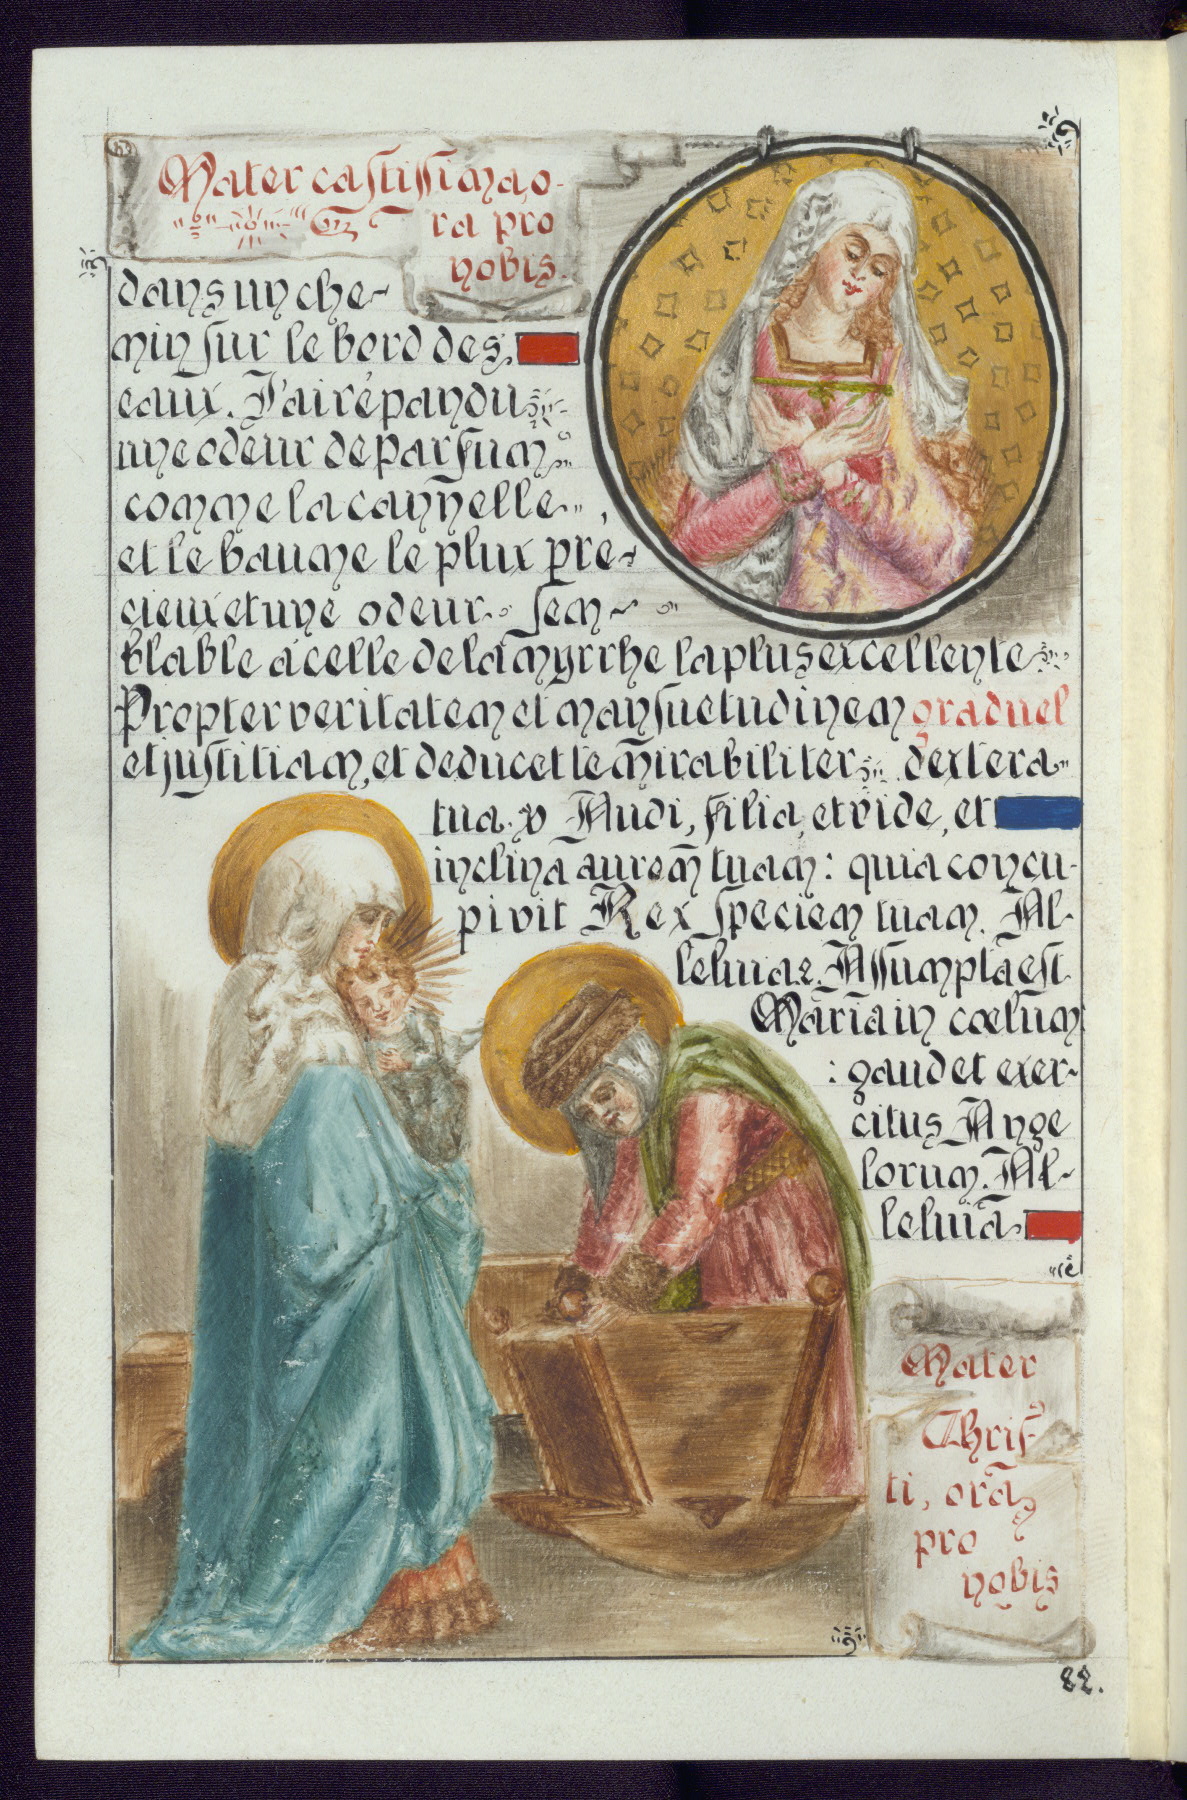 Mater castissima, o-
ra pro
nobis.
dans un che-
min sur le bord des
eaux. J'ai répandu
une odeur de parfum
comme la cannelle,
et le baume le plux pre-
cieux et une odeur sem-
blable à celle de la myrrhe la plus excellente
Propter veritatem et mansuetudinem graduel
et justitiam, et deducet te mirabiliter dextera
tua. v Audi, filia, et vide, et
inclina aurem tuam: quia concu-
pivit Rex speciem tuam. Al-
leluia. v. Assumpta est
Maria in cœlum
: gaudet exer-
citus Ange
lorum. Al-
leluia
Mater
Chris-
ti, ora
pro
nobis
82.